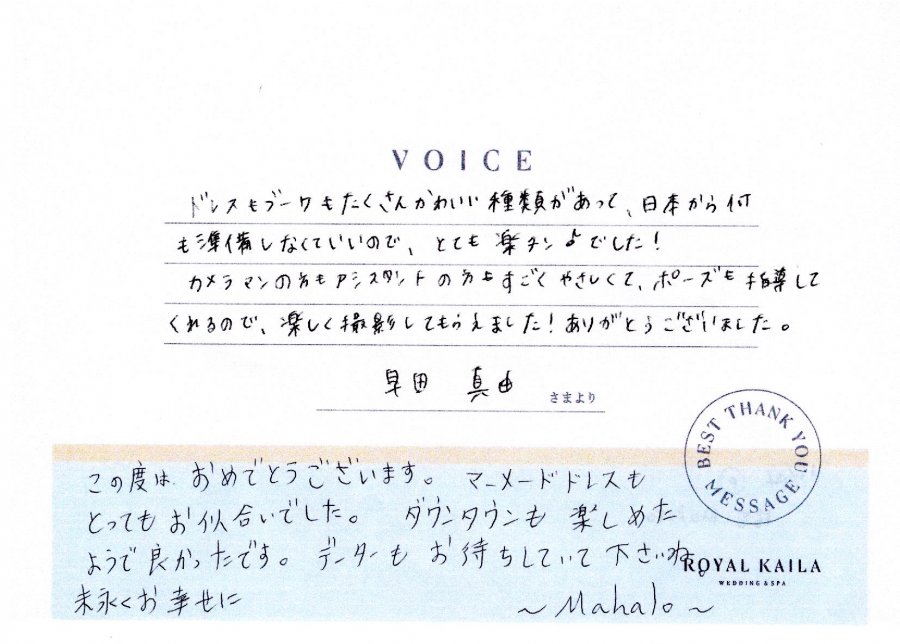 VOICE
ドレスもブーケもたくさんかわいい種類があって、日本から何
も準備しなくていいので、とても楽チン♪でした!
カメラマンの方もアシスタントの方もすごくやさしくて、ポーズも指導して
くれるので、楽しく撮影してもらえました!ありがとうございました。
早田 真由
さまより
BEST THANK YOU MESSAGE
この度は おめでとうございます。 マーメードドレスも
とっても お似合いでした。 ダウンタウンも 楽しめた
ようで良かったです。データーも お待ちしていて 下さいね。
ROYAL KAILA
WEDDING & SPA
末永くお幸せに ~Mahalo~